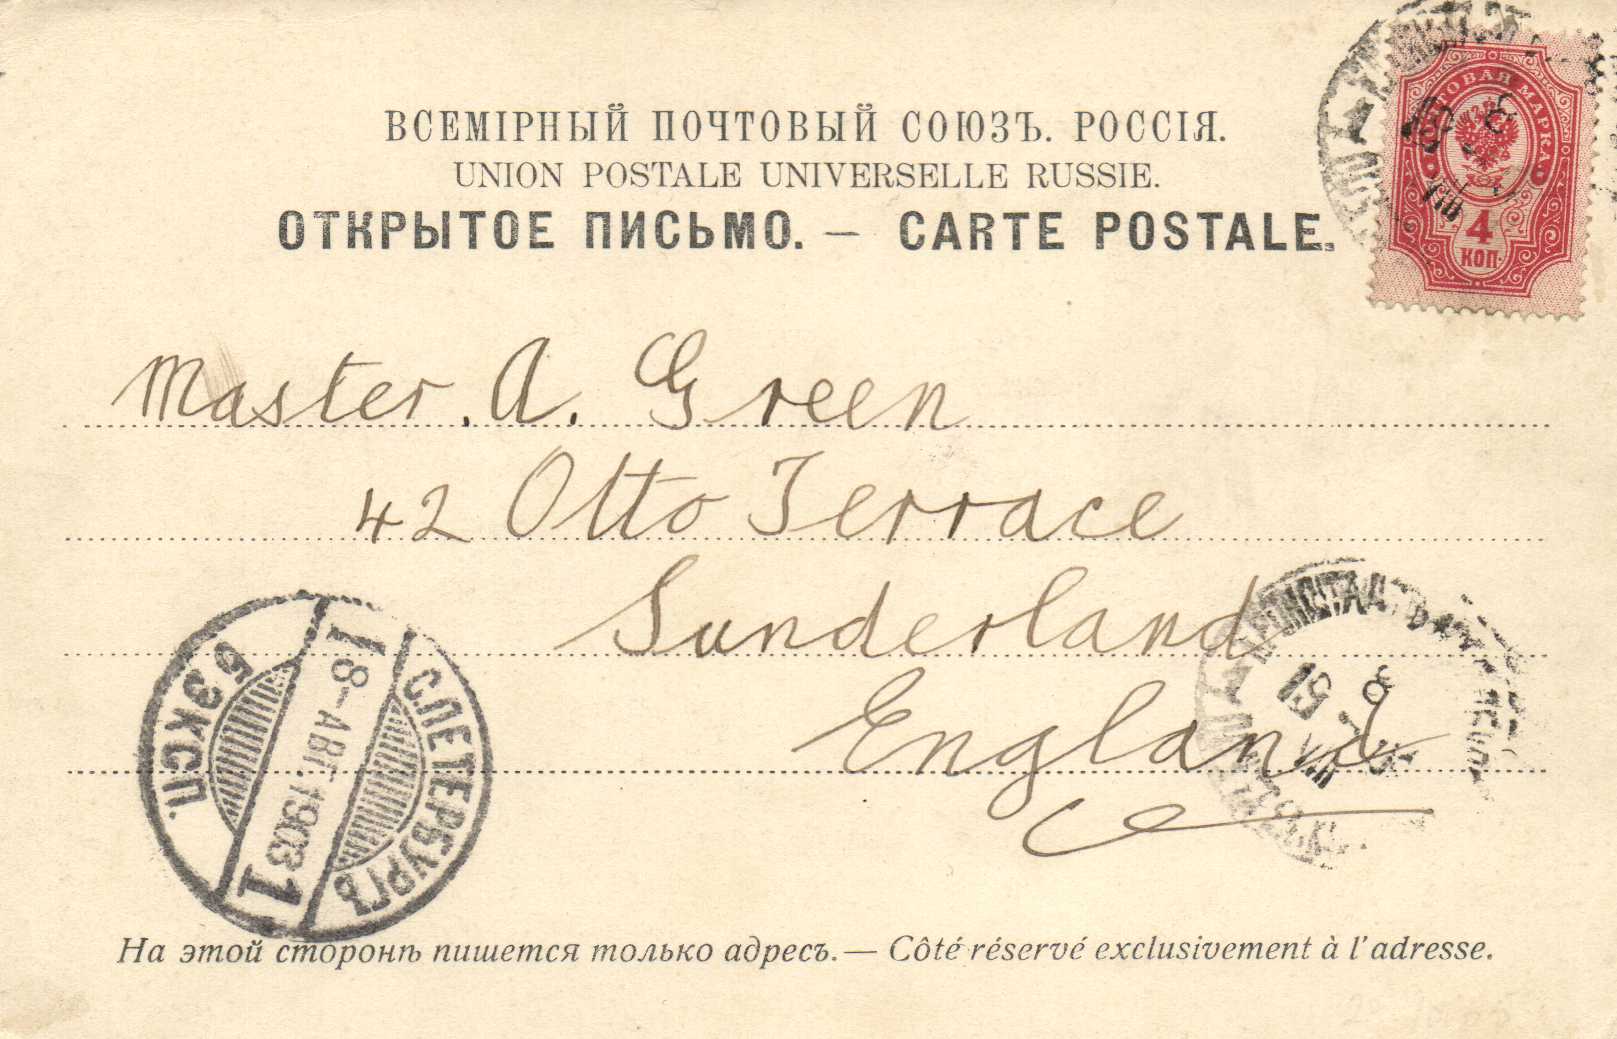 ВСЕМІРНЫЙ ПОЧТОВЫЙ СОЮЗЪ. РОССІЯ.
UNION POSTALE UNIVERSELLE RUSSIE.
ОТКРЫТОЕ ПИСЬМО. — CARTE POSTALE.
ПОЧТОВАЯ МАРКА
4
КОП.
Master. A. Green
42 Otto Terrace
Sunderland
England
С.ПЕТЕРБУРГЪ
8-АВГ.1903
1
6 ЭКСП.
На этой сторонѣ пишется только адресъ.— Côté réservé exclusivement à l'adresse.